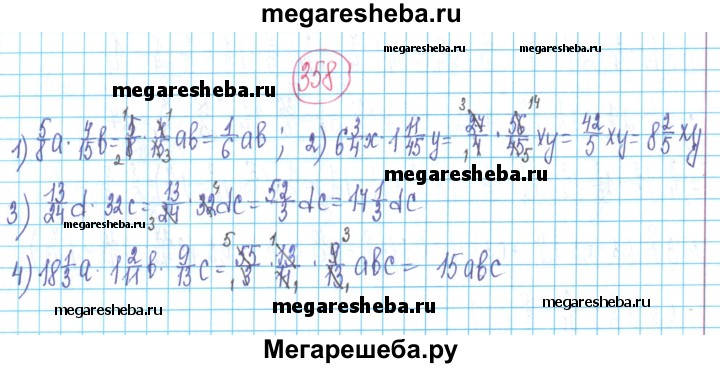 megaresheba.ru
358
megaresheba.ru
megaresheba.ru
megaresheba.ru
1) 5/8 a · 4/15 b = 5/8 · 4/15 ab = 1/6 ab ; 2) 6 3/4 x · 1 11/45 y = 27/4 · 56/45 xy = 42/5 xy = 8 2/5 xy
megaresheba.ru
3) 13/24 d · 32c = 13/24 · 32 dc = 52/3 dc = 17 1/3 dc
megaresheba.ru
megaresheba.ru
4) 18 1/3 a · 1 2/11 b · 9/13 c = 55/3 · 13/11 · 9/13 abc = 15abc
megaresheba.ru
megaresheba.ru
Мегарешеба.ру